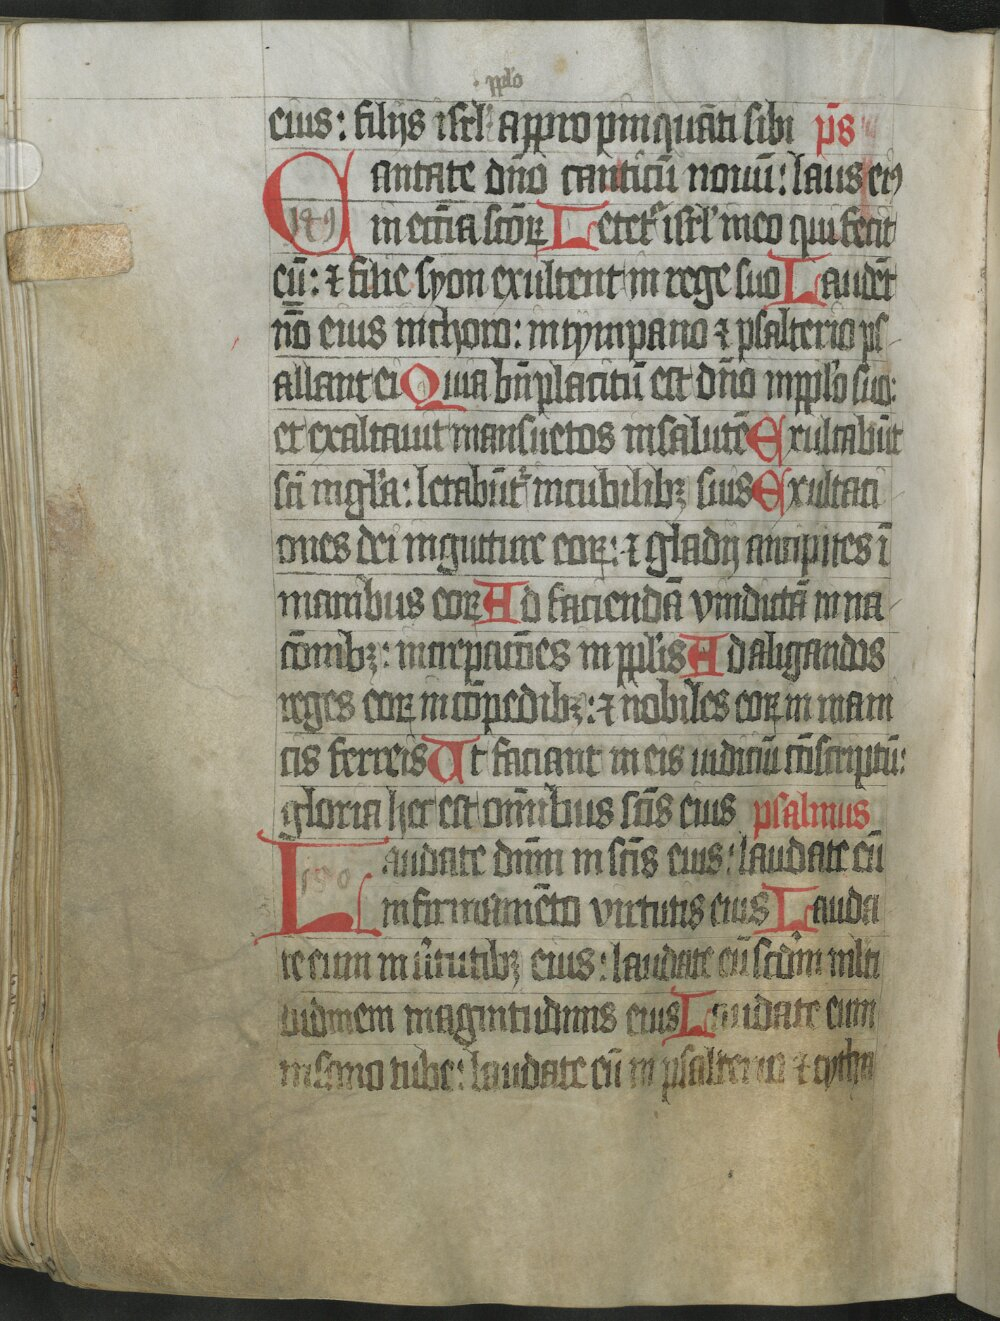 ppl̄o
eius: filijs isrl̄ appropinquāti sibi p̄s
Cantate dn̄o canticū nouū: laus eiꝰ
149
in eccl̄ia sc̄oꝝ Letet᷑ isrl̄ in eo qui fecit
eū: ⁊ filie syon exultent in rege suo Laudēt
no̅ eius in choro: in tympano ⁊ psalterio ps
allant ei Quia bn̄placitū est dn̄o in ppl̄o suo:
et exaltauit mansuetos in salutē Exultabūt
sc̄i in gl̄a: letabūt᷑ in cubilibꝫ suis Exultaci
ones dei in gutture eoꝝ: ⁊ gladij ancipites ī
manibus eoꝝ Ad faciendā vindictā in na
c̄onibꝫ: increpac̄ōes in ppl̄is Ad aligandos
reges eoꝝ in cōpedibꝫ: ⁊ nobiles eoꝝ in mani
cis ferreis Ut faciant in eis iudiciū cōscriptū:
gloria hec est om̄ibus sc̄is eius psalmus
Laudate dn̄m in sc̄is eius: laudate eū
150
in firmamēto virtutis eius Lauda
te eum in ūtutibꝫ eius: laudate eū scdm̄ ml̄ti
tudinem magnitudinis eius Laudate eum
in sono tube: laudate eū in psalterio ⁊ cytha